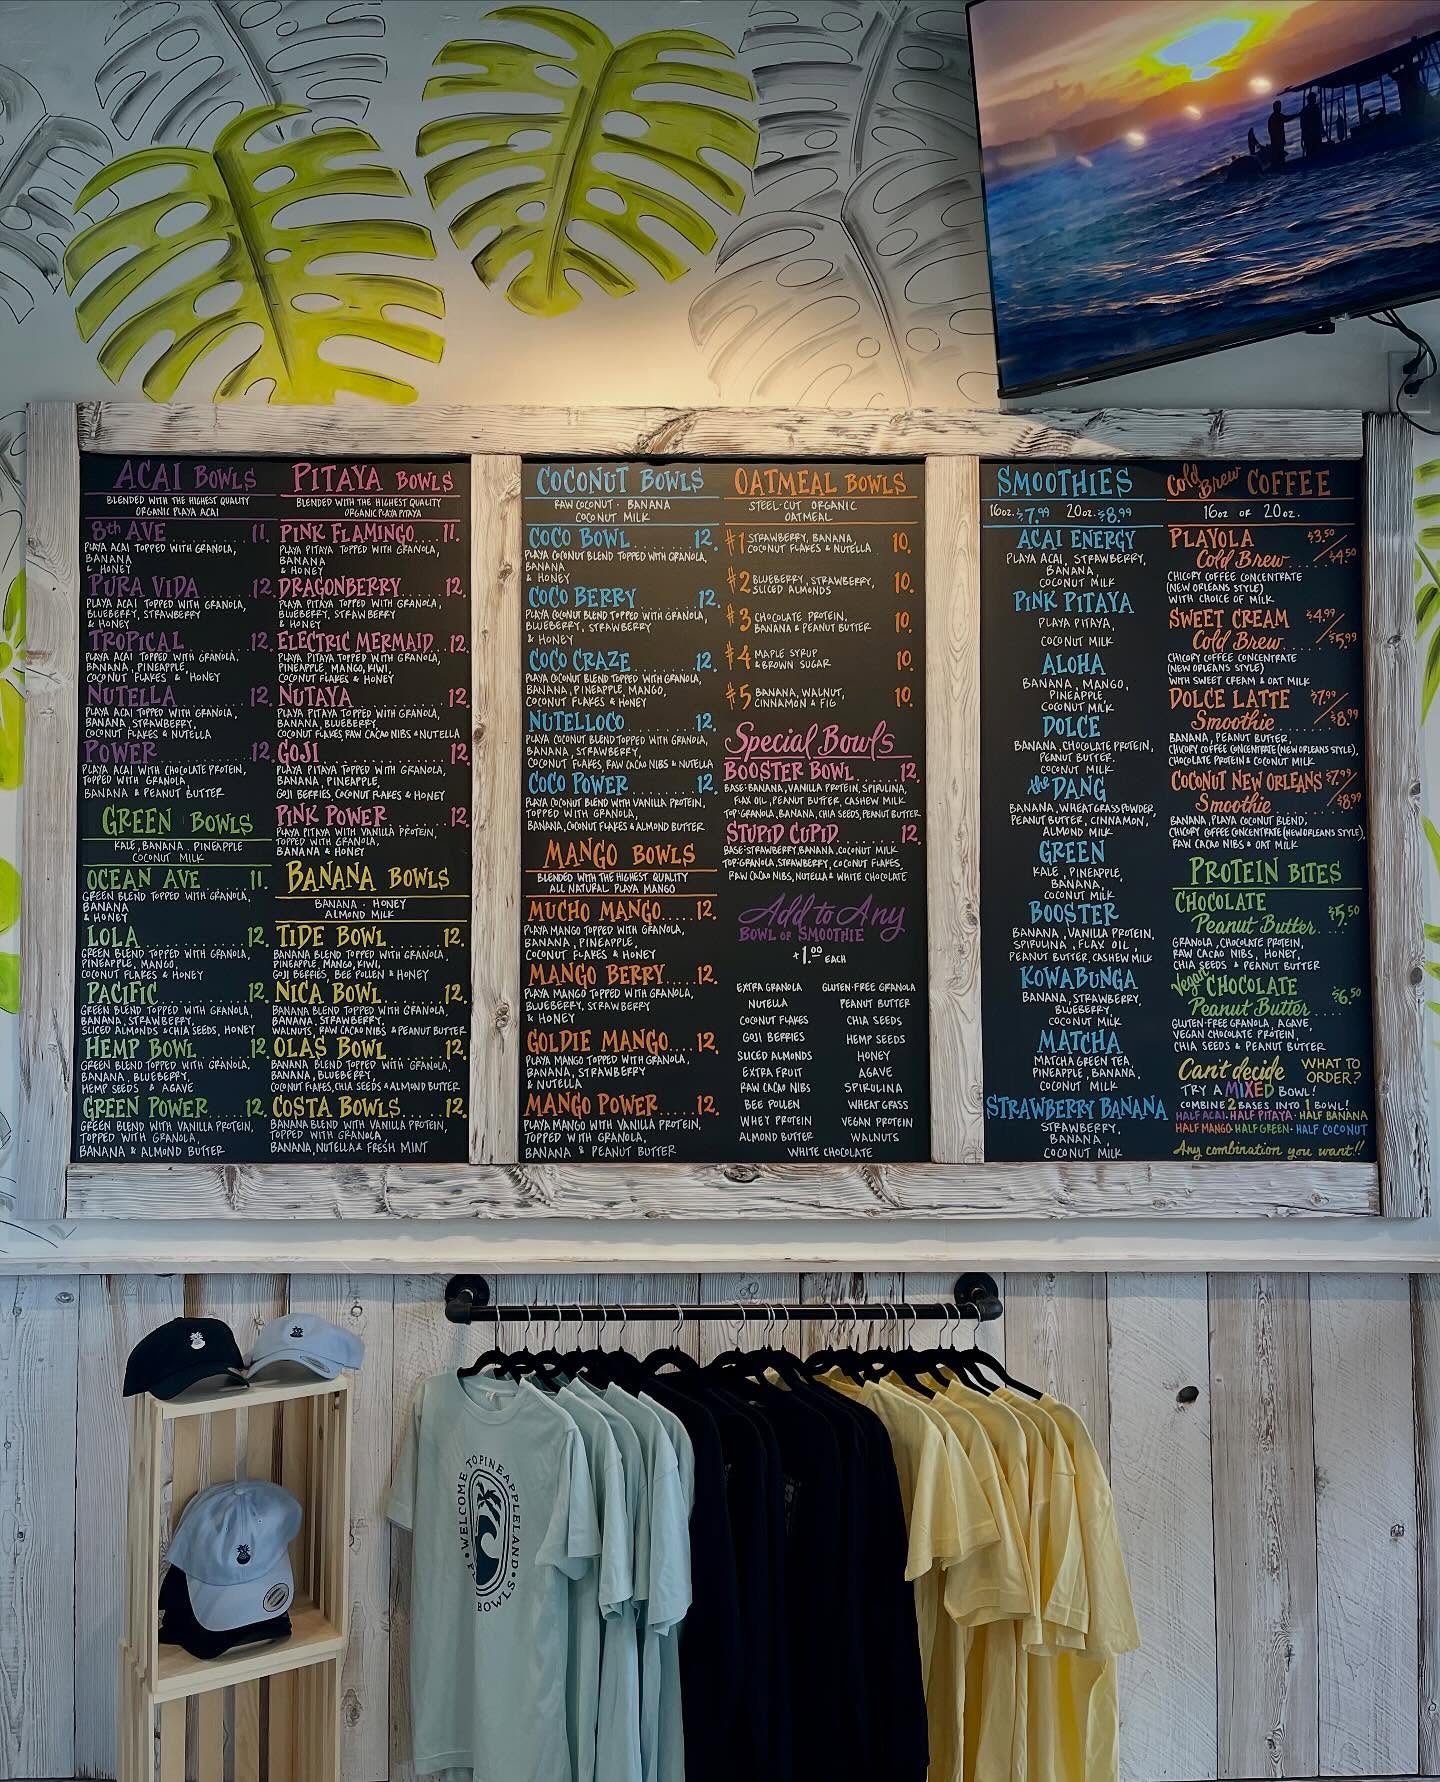 ACAI BOWLS
BLENDED WITH THE HIGHEST QUALITY
ORGANIC PLAYA ACAI
8th AVE 11.
PLAYA ACAI TOPPED WITH GRANOLA,
BANANA
& HONEY
PURA VIDA 12.
PLAYA ACAI TOPPED WITH GRANOLA,
BLUEBERRY, STRAWBERRY
& HONEY
TROPICAL 12.
PLAYA ACAI TOPPED WITH GRANOLA,
BANANA, PINEAPPLE,
COCONUT FLAKES & HONEY
NUTELLA 12.
PLAYA ACAI TOPPED WITH GRANOLA,
BANANA, STRAWBERRY,
COCONUT FLAKES & NUTELLA
POWER 12.
PLAYA ACAI WITH CHOCOLATE PROTEIN,
TOPPED WITH GRANOLA,
BANANA & PEANUT BUTTER
GREEN BOWLS
KALE, BANANA, PINEAPPLE
COCONUT MILK
OCEAN AVE 11.
GREEN BLEND TOPPED WITH GRANOLA,
BANANA
& HONEY
LOLA 12.
GREEN BLEND TOPPED WITH GRANOLA,
PINEAPPLE, MANGO,
COCONUT FLAKES & HONEY
PACIFIC 12.
GREEN BLEND TOPPED WITH GRANOLA,
BANANA, STRAWBERRY,
SLICED ALMONDS & CHIA SEEDS, HONEY
HEMP BOWL 12.
GREEN BLEND TOPPED WITH GRANOLA,
BANANA, BLUEBERRY,
HEMP SEEDS & AGAVE
GREEN POWER 12.
GREEN BLEND WITH VANILLA PROTEIN,
TOPPED WITH GRANOLA,
BANANA & ALMOND BUTTER
PITAYA BOWLS
BLENDED WITH THE HIGHEST QUALITY
ORGANIC PLAYA PITAYA
PINK FLAMINGO 11.
PLAYA PITAYA TOPPED WITH GRANOLA,
BANANA
& HONEY
DRAGONBERRY 12.
PLAYA PITAYA TOPPED WITH GRANOLA,
BLUEBERRY, STRAWBERRY
& HONEY
ELECTRIC MERMAID 12.
PLAYA PITAYA TOPPED WITH GRANOLA,
PINEAPPLE, MANGO, KIWI,
COCONUT FLAKES & HONEY
NUTAYA 12.
PLAYA PITAYA TOPPED WITH GRANOLA,
BANANA, BLUEBERRY,
COCONUT FLAKES, RAW CACAO NIBS & NUTELLA
GOJI 12.
PLAYA PITAYA TOPPED WITH GRANOLA,
BANANA, PINEAPPLE,
GOJI BERRIES, COCONUT FLAKES & HONEY
PINK POWER 12.
PLAYA PITAYA WITH VANILLA PROTEIN,
TOPPED WITH GRANOLA,
BANANA & HONEY
BANANA BOWLS
BANANA · HONEY
ALMOND MILK
TIDE BOWL 12.
BANANA BLEND TOPPED WITH GRANOLA,
PINEAPPLE, MANGO, KIWI,
GOJI BERRIES, BEE POLLEN & HONEY
NICA BOWL 12.
BANANA BLEND TOPPED WITH GRANOLA,
BANANA, STRAWBERRY,
WALNUTS, RAW CACAO NIBS & PEANUT BUTTER
OLAS BOWL 12.
BANANA BLEND TOPPED WITH GRANOLA,
BANANA, BLUEBERRY,
COCONUT FLAKES, CHIA SEEDS & ALMOND BUTTER
COSTA BOWLS 12.
BANANA BLEND WITH VANILLA PROTEIN,
TOPPED WITH GRANOLA,
BANANA, NUTELLA & FRESH MINT
COCONUT BOWLS
RAW COCONUT · BANANA
COCONUT MILK
COCO BOWL 12.
PLAYA COCONUT BLEND TOPPED WITH GRANOLA,
BANANA
& HONEY
COCO BERRY 12.
PLAYA COCONUT BLEND TOPPED WITH GRANOLA,
BLUEBERRY, STRAWBERRY
& HONEY
COCO CRAZE 12.
PLAYA COCONUT BLEND TOPPED WITH GRANOLA,
BANANA, PINEAPPLE, MANGO,
COCONUT FLAKES & HONEY
NUTELLOCO 12.
PLAYA COCONUT BLEND TOPPED WITH GRANOLA,
BANANA, STRAWBERRY,
COCONUT FLAKES, RAW CACAO NIBS & NUTELLA
COCO POWER 12.
PLAYA COCONUT BLEND WITH VANILLA PROTEIN,
TOPPED WITH GRANOLA,
BANANA, COCONUT FLAKES & ALMOND BUTTER
MANGO BOWLS
BLENDED WITH THE HIGHEST QUALITY
ALL NATURAL PLAYA MANGO
MUCHO MANGO 12.
PLAYA MANGO TOPPED WITH GRANOLA,
BANANA, PINEAPPLE,
COCONUT FLAKES & HONEY
MANGO BERRY 12.
PLAYA MANGO TOPPED WITH GRANOLA,
BLUEBERRY, STRAWBERRY
& HONEY
GOLDIE MANGO 12.
PLAYA MANGO TOPPED WITH GRANOLA,
BANANA, STRAWBERRY
& NUTELLA
MANGO POWER 12.
PLAYA MANGO WITH VANILLA PROTEIN,
TOPPED WITH GRANOLA,
BANANA & PEANUT BUTTER
OATMEAL BOWLS
STEEL-CUT ORGANIC
OATMEAL
#1 STRAWBERRY, BANANA 10.
COCONUT FLAKES & NUTELLA
#2 BLUEBERRY, STRAWBERRY, 10.
SLICED ALMONDS
#3 CHOCOLATE PROTEIN, 10.
BANANA & PEANUT BUTTER
#4 MAPLE SYRUP 10.
& BROWN SUGAR
#5 BANANA, WALNUT, 10.
CINNAMON & FIG
Special Bowls
BOOSTER BOWL 12.
BASE: BANANA, VANILLA PROTEIN, SPIRULINA,
FLAX OIL, PEANUT BUTTER, CASHEW MILK
TOP: GRANOLA, BANANA, CHIA SEEDS, PEANUT BUTTER
STUPID CUPID 12.
BASE: STRAWBERRY, BANANA, COCONUT MILK
TOP: GRANOLA, STRAWBERRY, COCONUT FLAKES,
RAW CACAO NIBS, NUTELLA & WHITE CHOCOLATE
Add to Any
BOWL OR SMOOTHIE
+1.00 EACH
EXTRA GRANOLA GLUTEN-FREE GRANOLA
NUTELLA PEANUT BUTTER
COCONUT FLAKES CHIA SEEDS
GOJI BERRIES HEMP SEEDS
SLICED ALMONDS HONEY
EXTRA FRUIT AGAVE
RAW CACAO NIBS SPIRULINA
BEE POLLEN WHEAT GRASS
WHEY PROTEIN VEGAN PROTEIN
ALMOND BUTTER WALNUTS
WHITE CHOCOLATE
SMOOTHIES
16oz. $7.99 20oz. $8.99
ACAI ENERGY
PLAYA ACAI, STRAWBERRY,
BANANA,
COCONUT MILK
PINK PITAYA
PLAYA PITAYA,
COCONUT MILK
ALOHA
BANANA, MANGO,
PINEAPPLE
COCONUT MILK
DOLCE
BANANA, CHOCOLATE PROTEIN,
PEANUT BUTTER.
COCONUT MILK
the DANG
BANANA, WHEATGRASS POWDER,
PEANUT BUTTER, CINNAMON,
ALMOND MILK
GREEN
KALE, PINEAPPLE,
BANANA,
COCONUT MILK
BOOSTER
BANANA, VANILLA PROTEIN,
SPIRULINA, FLAX OIL,
PEANUT BUTTER, CASHEW MILK
KOWABUNGA
BANANA, STRAWBERRY,
BLUEBERRY,
COCONUT MILK
MATCHA
MATCHA GREEN TEA
PINEAPPLE, BANANA,
COCONUT MILK
STRAWBERRY BANANA
STRAWBERRY,
BANANA,
COCONUT MILK
Cold Brew COFFEE
16oz OR 20oz.
PLAYOLA $3.50
Cold Brew $4.50
CHICORY COFFEE CONCENTRATE
(NEW ORLEANS STYLE)
WITH CHOICE OF MILK
SWEET CREAM $4.99
Cold Brew $5.99
CHICORY COFFEE CONCENTRATE
(NEW ORLEANS STYLE)
WITH SWEET CREAM & OAT MILK
DOLCE LATTE $7.99
Smoothie $8.99
BANANA, PEANUT BUTTER,
CHICORY COFFEE CONCENTRATE (NEW ORLEANS STYLE),
CHOCOLATE PROTEIN & COCONUT MILK
COCONUT NEW ORLEANS $7.99
Smoothie $8.99
BANANA, PLAYA COCONUT BLEND,
CHICORY COFFEE CONCENTRATE (NEW ORLEANS STYLE),
RAW CACAO NIBS & OAT MILK
PROTEIN BITES
CHOCOLATE
Peanut Butter $5.50
GRANOLA, CHOCOLATE PROTEIN,
RAW CACAO NIBS, HONEY,
CHIA SEEDS & PEANUT BUTTER
Vegan CHOCOLATE
Peanut Butter $6.50
GLUTEN-FREE GRANOLA, AGAVE,
VEGAN CHOCOLATE PROTEIN,
CHIA SEEDS & PEANUT BUTTER
Can't decide WHAT TO
ORDER?
TRY A MIXED BOWL!
COMBINE 2 BASES INTO 1 BOWL!
HALF ACAI · HALF PITAYA · HALF BANANA
HALF MANGO · HALF GREEN · HALF COCONUT
Any combination you want!!
WELCOME TO PINEAPPLELAND
BOWLS